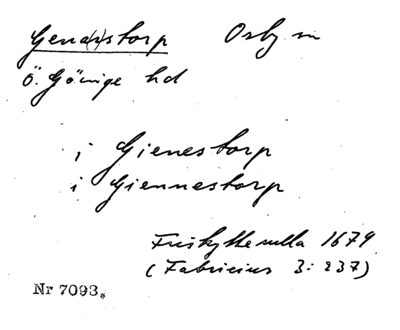 Gena(r)storp Osby sn
Ö. Göinge hd
i Gienestorp
i Giennestorp
Friskytterulla 1679
(Fabricius 3: 237)
Nr 7093.